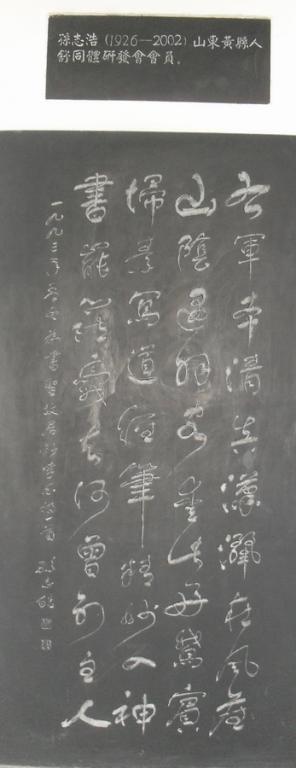 孫志浩 (1926—2002) 山東黄縣人
舒同體研發會會員。
右軍本清真瀟灑在風塵
山陰過羽客愛此好鵞賓
掃素寫道經筆精妙入神
書罷籠鵞去何曾別主人
一九九三年 書聖故居 李白詩一首 孫志浩